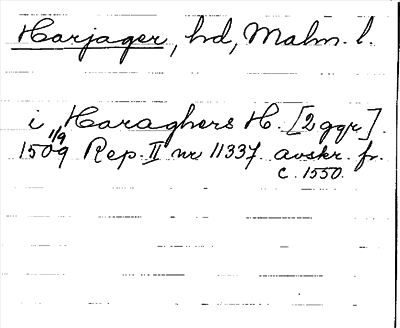 Harjager, hd, Malm. l.
i Haraghers H. [2 ggr].
1/9
1509 Rep. II nr 11337. avskr. fr.
c. 1550